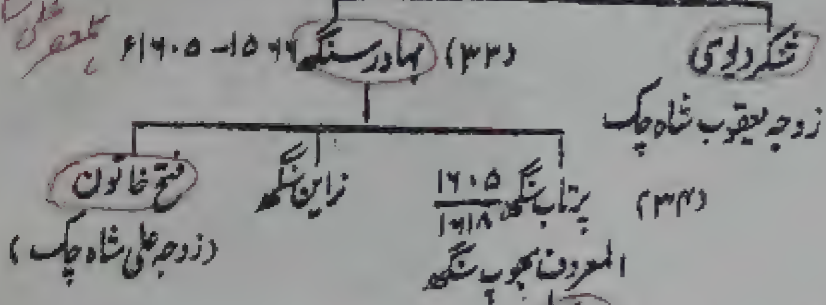 شنکر دیوی
زوجہ یعقوب شاہ چک
(۳۳) بہادر سنگھ ۱۵۶۶-۱۶۰۵ء
ہمعصر علی
(۳۴) پرتاب سنگھ ۱۶۰۵
۱۶۱۸
المعروف بجوب سنگھ
نراین سنگھ
فتح خاتون
(زوجہ علی شاہ چک)